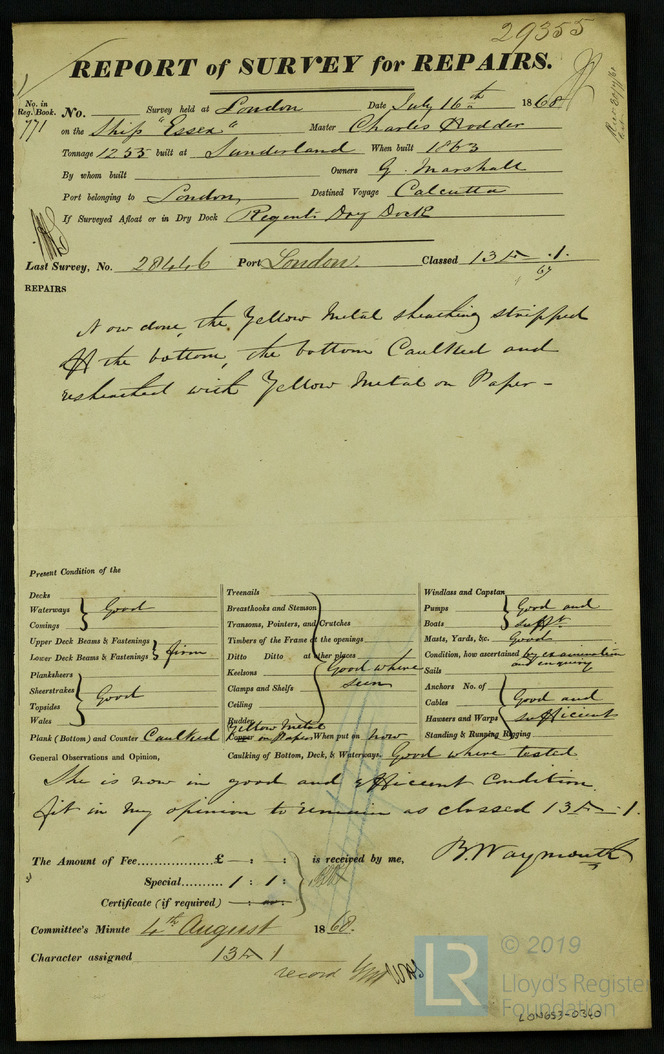 29355
REPORT of SURVEY for REPAIRS.
No. in Reg. Book.
771
No. Survey held at London Date July 16th 1868
on the Ship "Essex" Master Charles Hodder
Tonnage 1255 built at Sunderland When built 1863
By whom built Owners G. Marshall
Port belonging to London Destined Voyage Calcutta
If Surveyed Afloat or in Dry Dock Regents Dry Dock
Last Survey, No. 28446 Port London. Classed 13 A .1.
67
REPAIRS
Now done, the Yellow Metal sheathing stripped
off the bottom, the bottom Caulked and
resheathed with Yellow Metal on Paper -
Present Condition of the
Decks
Waterways Good
Comings
Upper Deck Beams & Fastenings
Lower Deck Beams & Fastenings firm
Planksheers
Sheerstrakes Good
Topsides
Wales
Plank (Bottom) and Counter Caulked
General Observations and Opinion,
Treenails
Breasthooks and Stemson
Transoms, Pointers, and Crutches
Timbers of the Frame at the openings
Ditto Ditto at other places
Keelsons Good where
Clamps and Shelfs seen
Ceiling
Rudder
Yellow Metal
Copper on Paper When put on now
Caulking of Bottom, Deck, & Waterways. Good where tested
Windlass and Capstan
Pumps Good and
Boats sufft.
Masts, Yards, &c. Good
Condition, how ascertained by examination
and enquiry
Sails
Anchors No. of
Cables Good and
Hawsers and Warps sufficient
Standing & Running Rigging
She is now in good and efficient Condition.
fit in my opinion to remain as classed 13 A .1.
B. Waymouth
The Amount of Fee £ — : — : is received by me,
Special 1 : 1 :
Certificate (if required)
Committee's Minute 4th August 1868.
Character assigned 13 A 1
record
LR
© 2019
Lloyd's Register
Foundation
LON653-0340